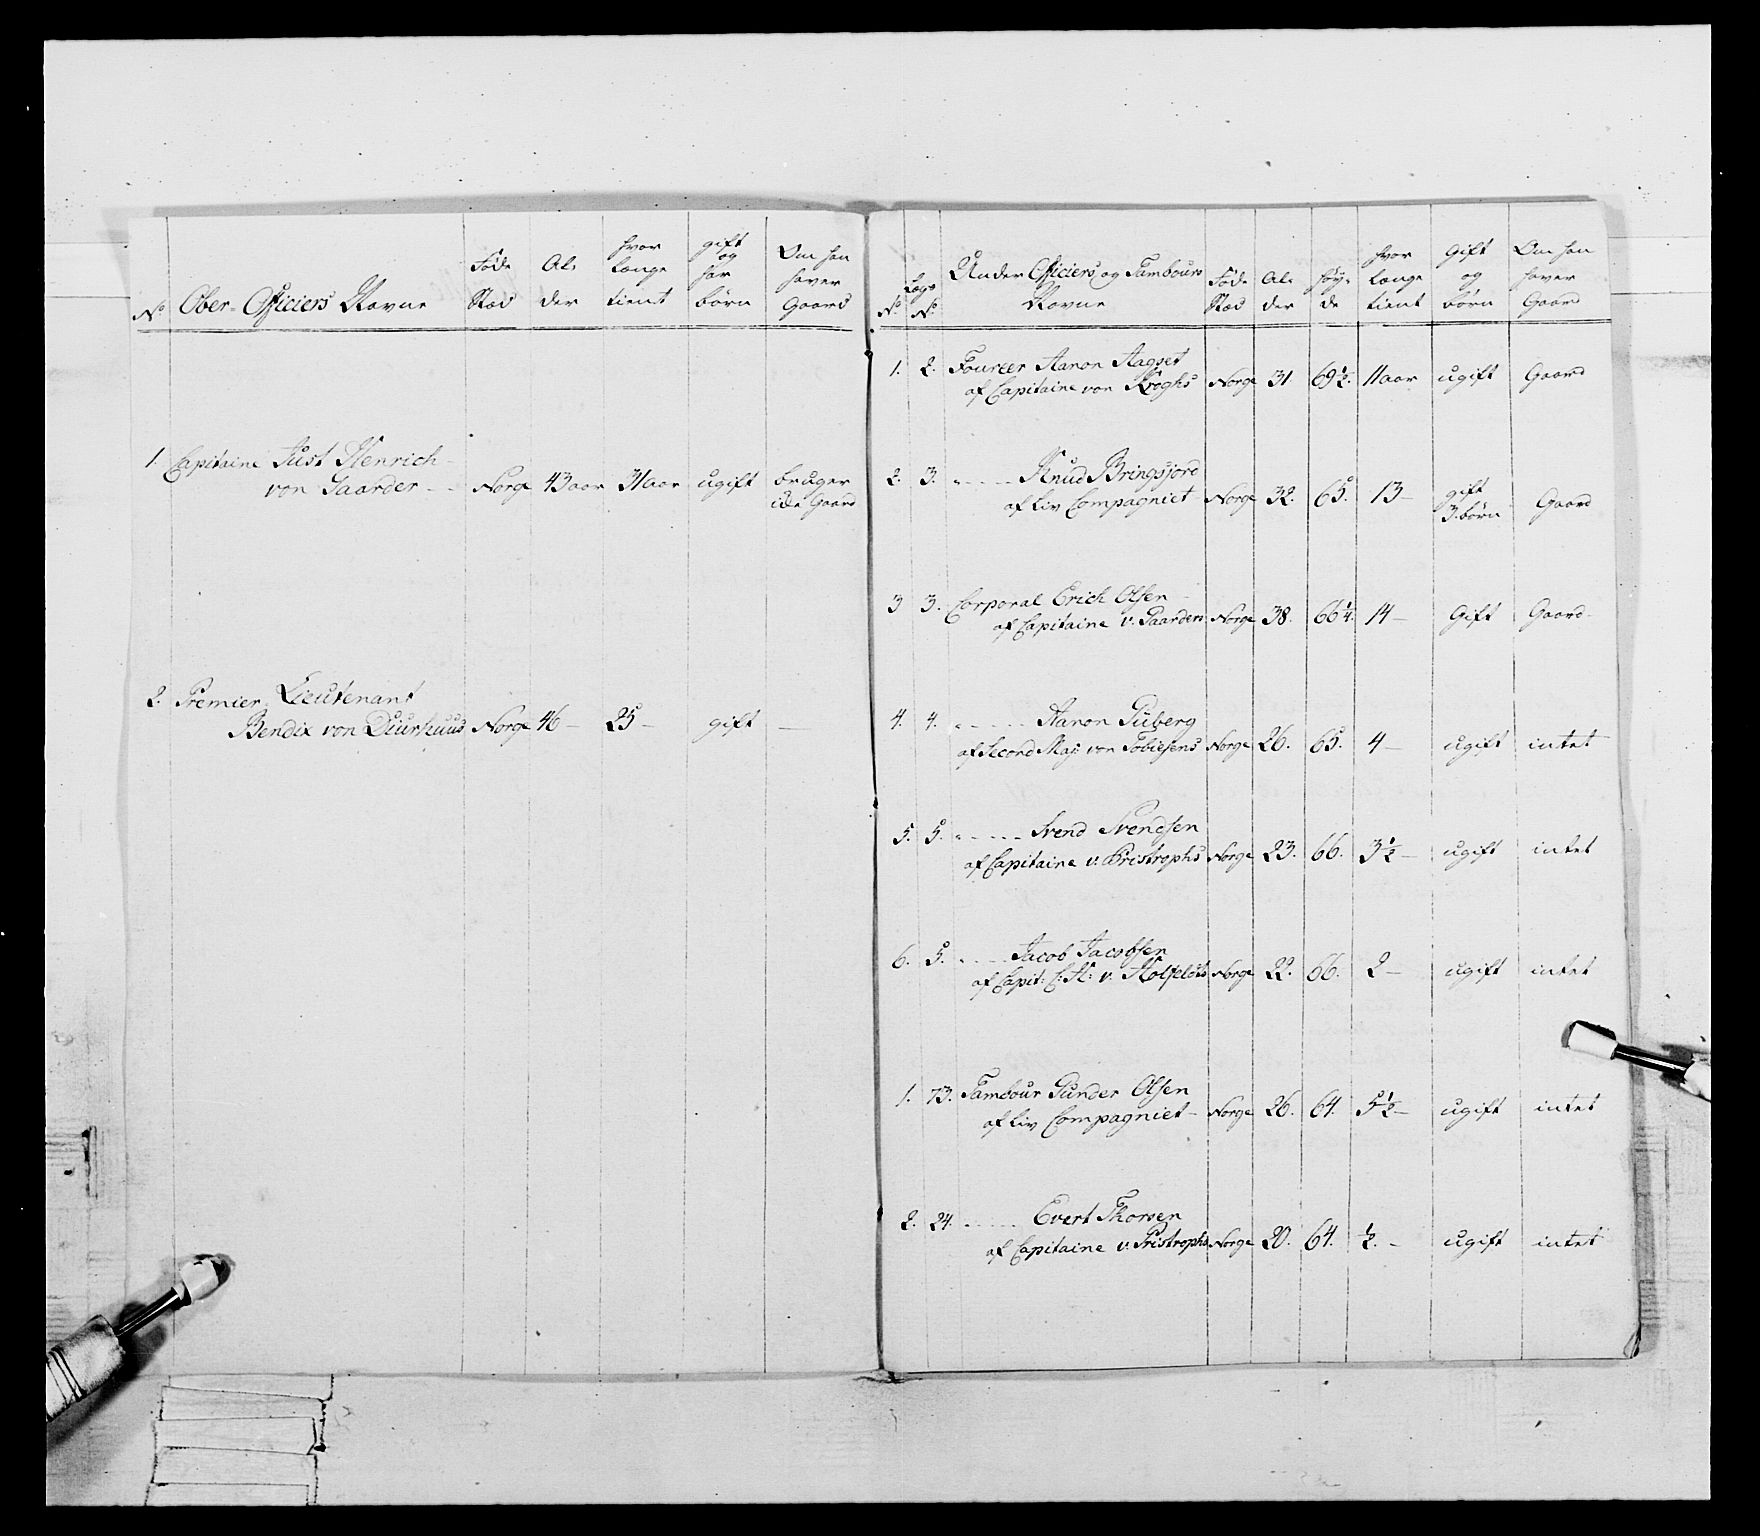 No Ober-Officiers Navne
Føde Stæd
Al- der
hvor længe tient
gift og har børn
Om han haver Gaard
1. Capitaine Just Henrich von Gaarder Norge 43 aar 31 aar ugift bruger icke Gaard
2. Premier Lieutenant
Bendix von Diurhuus Norge 46 25 gift
No
Lægs No
Under Officiers og Tambours Navne
Føde Stæd
Al- der
Høy- de
hvor længe tient
Gift og børn
Om han haver Gaard
1. 2. Foureer Aanon Aagset
af Capitaine von Kroghs Norge 31. 69½. 11 aar ugift Gaard
2. 3. Knud Bringsjord
af Liv Compagniet Norge 32. 65. 13 gift 3. børn Gaard
3 3. Corporal Erich Olsen
af Capitaine v. Gaarders Norge 38. 66¼. 14 Gift Gaard
4. 4. Aanon Tuberg
af Second Maj: von Tobiesens Norge 26. 65. 4 ugift intet
5. 5. Svend Svendsen
af Capitaine v. Pristrophs Norge 23. 66. 3½ ugift intet
6. 5. Jacob Jacobsen
af Capit: C: H: v. Holfeldts Norge 22. 66. 2 ugift intet
1. 73. Tambour Gunder Olsen
af Liv Compagniet Norge 26. 64. 5½ ugift intet
2. 24. Evert Thorsen
af Capitaine v. Pristrophs Norge 20. 64. ½. ugift intet